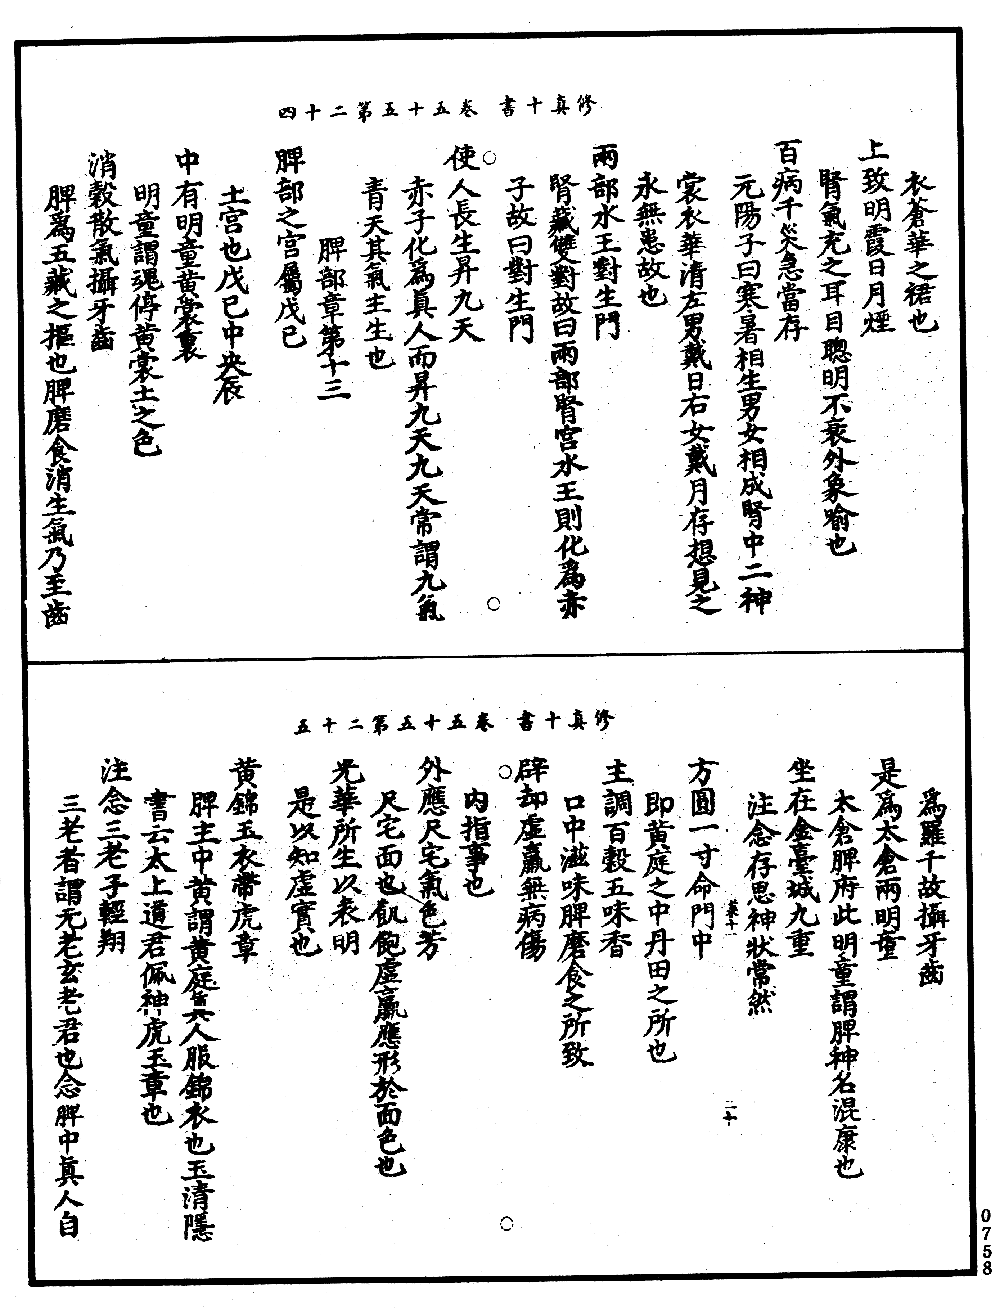 修真十書　卷五十五第二十四
衣蒼華之裙也
上致明霞日月煙
腎氣充之耳目聰明不衰外象喻也
百病千災急當存
元陽子曰寒暑相生男女相成腎中二神
裳衣華清左男戴日右女戴月存想見之
永無患故也
兩部水王對生門
腎藏雙對故曰兩部腎宮水王則化為赤
子故曰對生門
使人長生昇九天
赤子化為真人而昇九天九天常謂九氣
青天其氣主生也
脾部章第十三
脾部之宮屬戊己
土宮也戊己中央辰
中有明童黃裳裏
明童謂魂停黃裳土之色
消穀散氣攝牙齒
脾為五藏之樞也脾磨食消生氣乃至齒
修真十書　卷五十五第二十五
為羅千故攝牙齒
是為太倉兩明童
太倉脾府此明童謂脾神名混康也
坐在金臺城九重
注念存思神狀常然
方圓一寸命門中
即黃庭之中丹田之所也
主調百穀五味香
口中滋味脾磨食之所致
辟却虛羸無病傷
內指事也
外應尺宅氣色芳
尺宅面也飢飽虛羸應形於面色也
光華所生以表明
是以知虛實也
黃錦玉衣帶虎章
脾主中黃謂黃庭真人服錦衣也玉清隱
書云太上道君佩神虎玉章也
注念三老子輕翔
三老者謂元老玄老君也念脾中真人自
0758